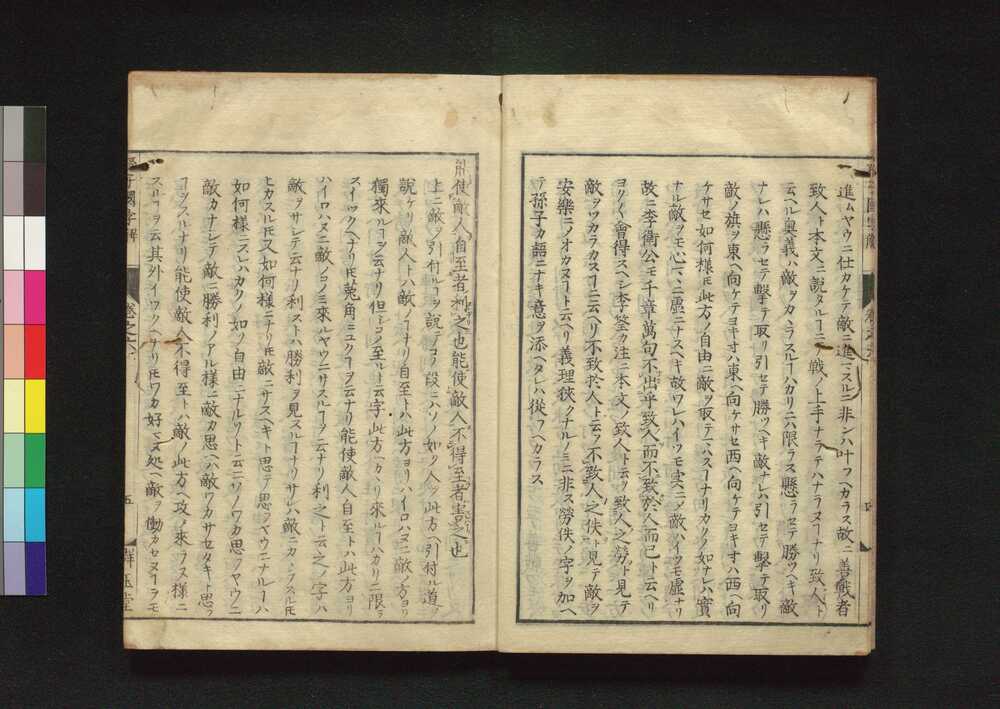 進ムヤウニ仕カケテ敵ニ進マスルニ非ンハ叶フヘカラス故ニ善戰者
致人ト本文ニ説タルコ 戰ノ上手ナラテハナラヌコナリ致人ト
云ヘル奥義ハ敵ヲカヽラスルコハカリニハ限ラス懸ラセテ勝ツヘキ敵
ナレハ懸ラセテ擊テ取リ引セテ勝ツヘキ敵ナレハ引セテ擊テ取リ
敵ノ旗ヲ東ヘ向ケテヨキオハ東ヘ向ケサセ西ヘ向ケテヨキオハ西ヘ向
ケサセ如何様ニモ此方ノ自由ニ敵ヲ取テマハスコナリカクノ如ナレハ實
ナル敵ヲモ心マヽニ虚ニナスヘキ故ワレハイツモ實ニメ敵ハイツモ虚ナリ
故ニ李衛公モ千章萬句不出乎致人而不致於人而已ト云ヘリ
ヨク〱會得スヘシ李筌カ注ニ本文ノ致人ト云ヲ致人之勞ト見テ
敵ヲツカラカスコニ云ヘリ不致於人ト云ヲ不致人之佚ト見テ敵ヲ
安樂ニノオカヌコト云ヘリ義理狹クナルノミニ非ス勞佚ノ字ヲ加ヘ
テ孫子カ語ニナキ意ヲ添ヘタレハ從フヘカラス
能使敵人自至者利之也能使敵人不得至者害之也
上ニ敵ヲ引付ルコヲ説テコノ段ニハソノ如ク人ヲ此方ヘ引付ル道ヲ
説ケリ敵人トハ敵ノコナリ自至トハ此方ヨリハイロハヌニ敵ノ方ヨリ
獨來ルコヲ云ナリ但シコノ至ルト云字此方ヘカヽリ來ルコハカリニ限ラ
スイツクヘナリ𪜈兎角ニユクコヲ云ナリ能使敵人自至トハ此方ヨリ
ハイロハヌニ敵ノコノミ來ルヤウニサスルコヲ云ナリ利之ト云之ノ字ハ
敵ヲサレテ云ナリ利ストハ勝利ヲ見スルコナリサレハ敵ニカヽラスル𪜈
ヒカスル𪜈又如何様ニナリ𪜈敵ニサスヘキト思テ思フヤウニナルコハ
如何様ニスレハカクノ如ク自由ニナルソト云ニソノワカ思フヤウニ
敵カナレテ敵ニ勝利ノアル様ニ敵カ思ヘハ敵ワカサセタキト思フ
コヲスルナリ能使敵人不得至トハ敵ノ此方ヘ攻メ來ラヌ様ニ
スルコヲ云其外イツクヘナリ𪜈ワカ好マヌ処ヘ敵ヲ働カセヌコヲモ
孫子國字解
卷之六
五
群玉堂